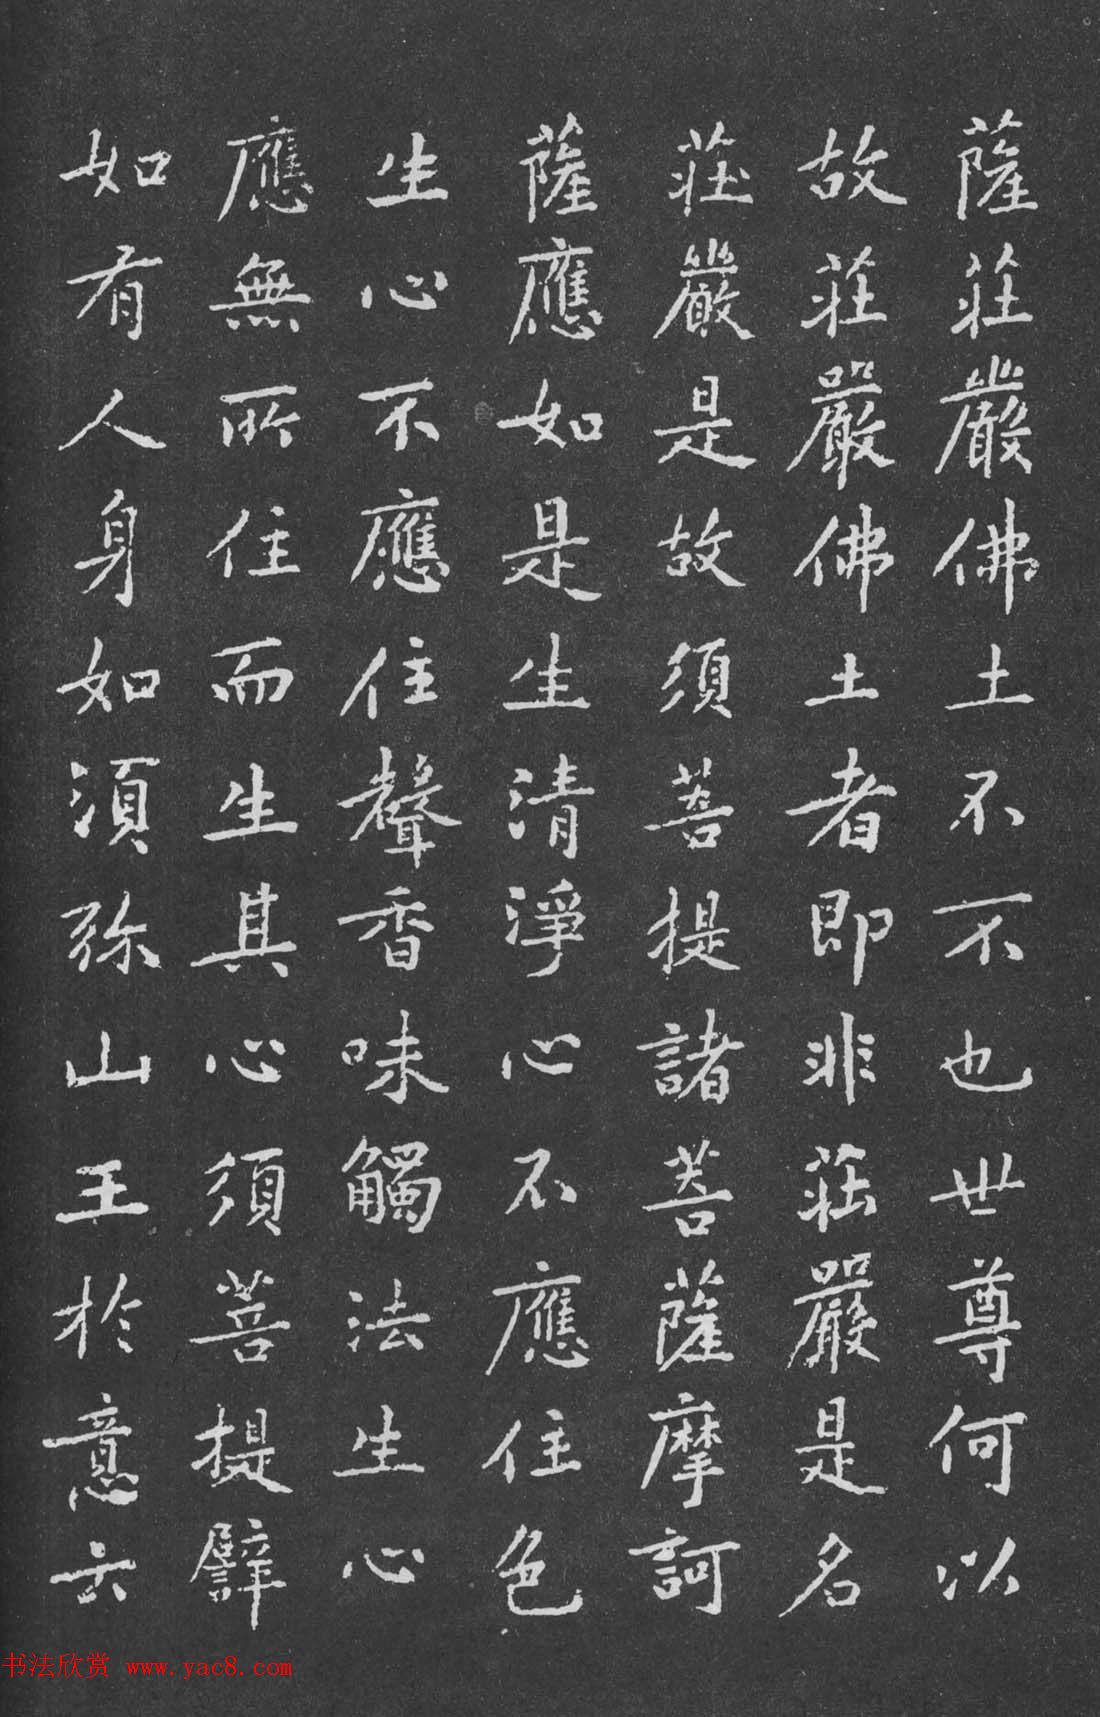 薩莊嚴佛土不不也世尊何以
故莊嚴佛土者即非莊嚴是名
莊嚴是故須菩提諸菩薩摩訶
薩應如是生清淨心不應住色
生心不應住聲香味觸法生心
應無所住而生其心須菩提譬
如有人身如須弥山王於意云
书法欣赏 www.yac8.com